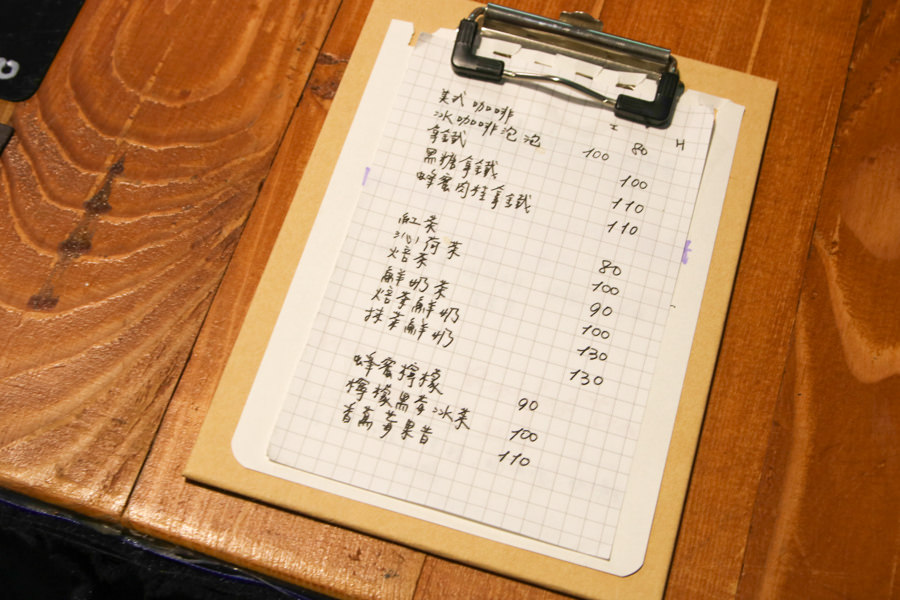 I H
美式咖啡 80
冰咖啡泡泡 100
拿鐵 100
黑糖拿鐵 110
蜂蜜肉桂拿鐵 110
紅茶 80
沁荷茶 100
焙茶 90
鮮奶茶 100
焙茶鮮奶 130
抹茶鮮奶 130
蜂蜜檸檬 90
檸檬黑莓冰茶 100
香蕉莓果昔 110